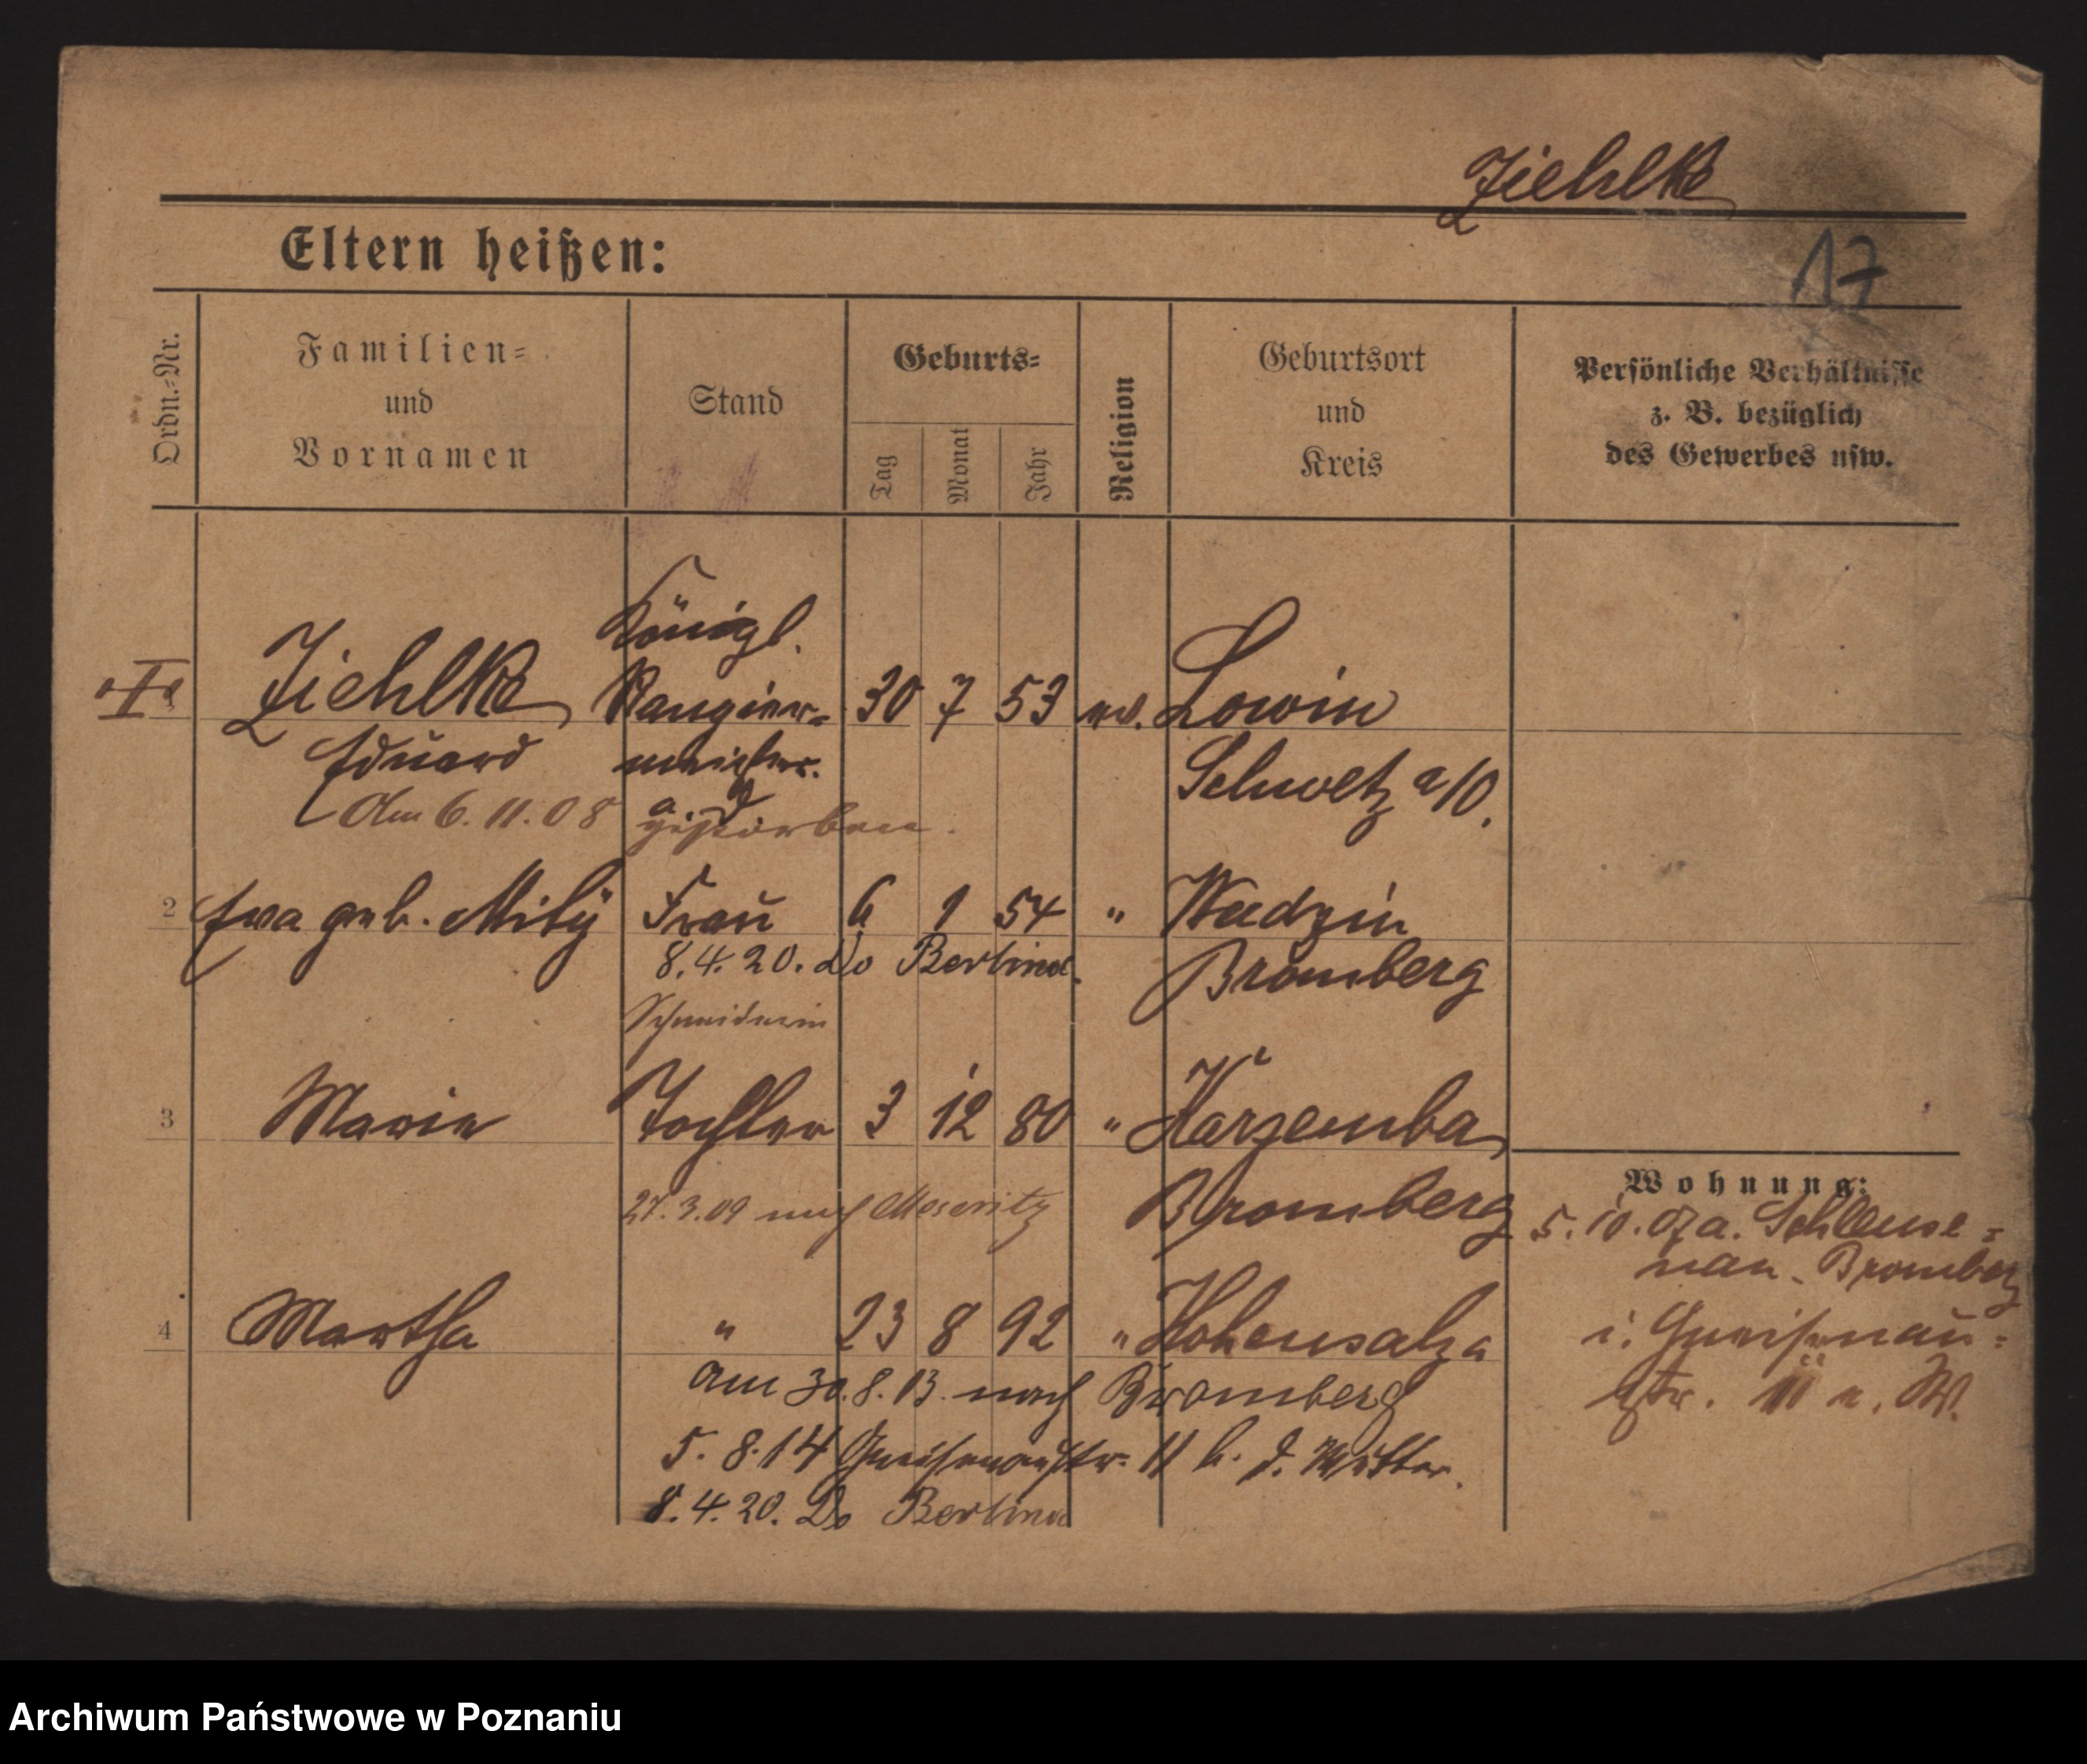 Ziehlke
17
Eltern heißen:
Ordn.-Nr.
Familien-
und
Vornamen
Stand
Geburts-
Tag
Monat
Jahr
Religion
Geburtsort
und
Kreis
Persönliche Verhältnisse
z. B. bezüglich
des Gewerbes usw.
Königl.
Ziehlke Rangier- 30 7 53 ev. Lowin
Eduard meister. Schwetz a/
Am 6.11.08 gestorben.
2 Ewa geb. Frau 6 1 54 " Wudzin
8.4.20. Do Berlina. Bromberg
Schneiderin
3 Marie Tochter 3 12 80 " Karzemba
27.3.09 nach Meseritz Bromberg
Wohnung:
5. 10. 07 a. Schleuse-
nau - Bromberg
4 Martha " 23 8 92 " Hohensalza
i. Gneisenau-
am 30.8.13. nach Bromberg
str. 11
5. 8. 14 Gneisenaustr. 11 b. d. Mutter.
8.4.20. Do Berlina
Archiwum Państwowe w Poznaniu